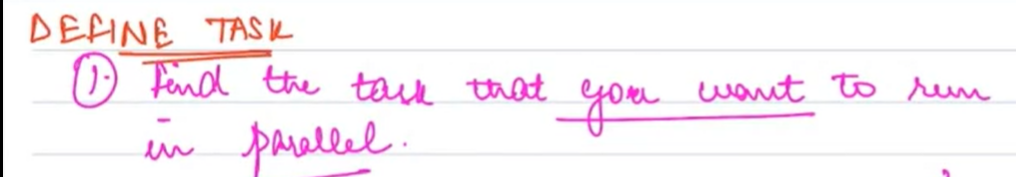 DEFINE TASK
① Find the task that you want to run
in parallel.